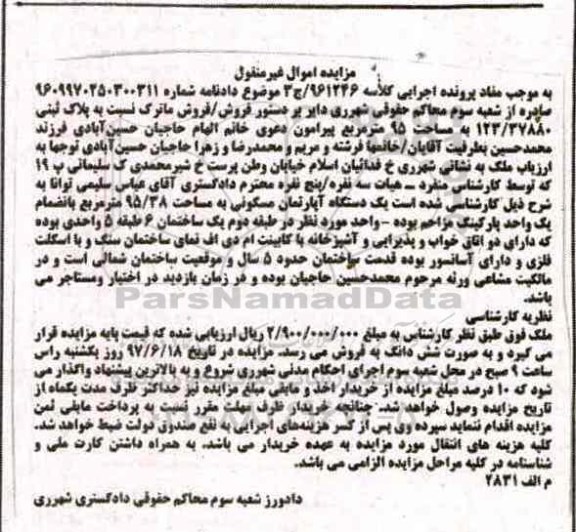 مزایده اموال غیرمنقول
به موجب مفاد پرونده اجرایی کلاسه ۹۶۱۲۴۶/ج۳ موضوع دادنامه شماره ۹۶۰۹۹۷۰۲۵۰۳۰۰۳۱۱
صادره از شعبه سوم محاکم حقوقی شهرری دایر بر دستور فروش/فروش ماترک نسبت به پلاک ثبتی
۱۲۳/۳۷۸۸۰ به مساحت ۹۵ مترمربع پیرامون دعوی خانم الهام حاجیان حسین‌آبادی فرزند
محمدحسین بطرفیت آقایان/خانمها فرشته و مریم و محمدرضا و زهرا حاجیان حسین‌آبادی توجها به
ارزیاب ملک به نشانی شهرری خ فدائیان اسلام خیابان وطن پرست خ شیرمحمدی ک سلیمانی پ ۱۹
که توسط کارشناس منفرد ـ هیات سه نفره/پنج نفره محترم دادگستری آقای عباس سلیمی توانا به
شرح ذیل کارشناسی شده است یک دستگاه آپارتمان مسکونی به مساحت ۹۵/۳۸ مترمربع بانضمام
یک واحد پارکینگ مزاحم بوده – واحد مورد نظر در طبقه دوم یک ساختمان ۶ طبقه ۵ واحدی بوده
که دارای دو اتاق خواب و پذیرایی و آشپزخانه با کابینت ام دی اف نمای ساختمان سنگ و با اسکلت
فلزی و دارای آسانسور بوده قدمت ساختمان حدود ۵ سال و موقعیت ساختمان شمالی است و در
مالکیت مشاعی ورثه مرحوم محمدحسین حاجیان بوده و در زمان بازدید در اختیار ومستاجر می
باشد.
ParsNamadData
نظریه کارشناسی
ملک فوق طبق نظر کارشناس به مبلغ ۲/۹۰۰/۰۰۰/۰۰۰ ریال ارزیابی شده که قیمت پایه مزایده قرار
می گیرد و به صورت شش دانگ به فروش می رسد. مزایده در تاریخ ۹۷/۶/۱۸ روز یکشنبه راس
ساعت ۹ صبح در محل شعبه سوم اجرای احکام مدنی شهرری شروع و به بالاترین پیشنهاد واگذار می
شود که ۱۰ درصد مبلغ مزایده از خریدار اخذ و مابقی مبلغ مزایده نیز حداکثر ظرف مدت یکماه از
تاریخ مزایده وصول خواهد شد. چنانچه خریدار ظرف مهلت مقرر نسبت به پرداخت مابقی ثمن
مزایده اقدام ننماید سپرده وی پس از کسر هزینه‌های اجرایی به نفع صندوق دولت ضبط خواهد شد.
کلیه هزینه های انتقال مورد مزایده به عهده خریدار می باشد. به همراه داشتن کارت ملی و
شناسنامه در کلیه مراحل مزایده الزامی می باشد.
م الف ۲۸۳۱
دادورز شعبه سوم محاکم حقوقی دادگستری شهرری